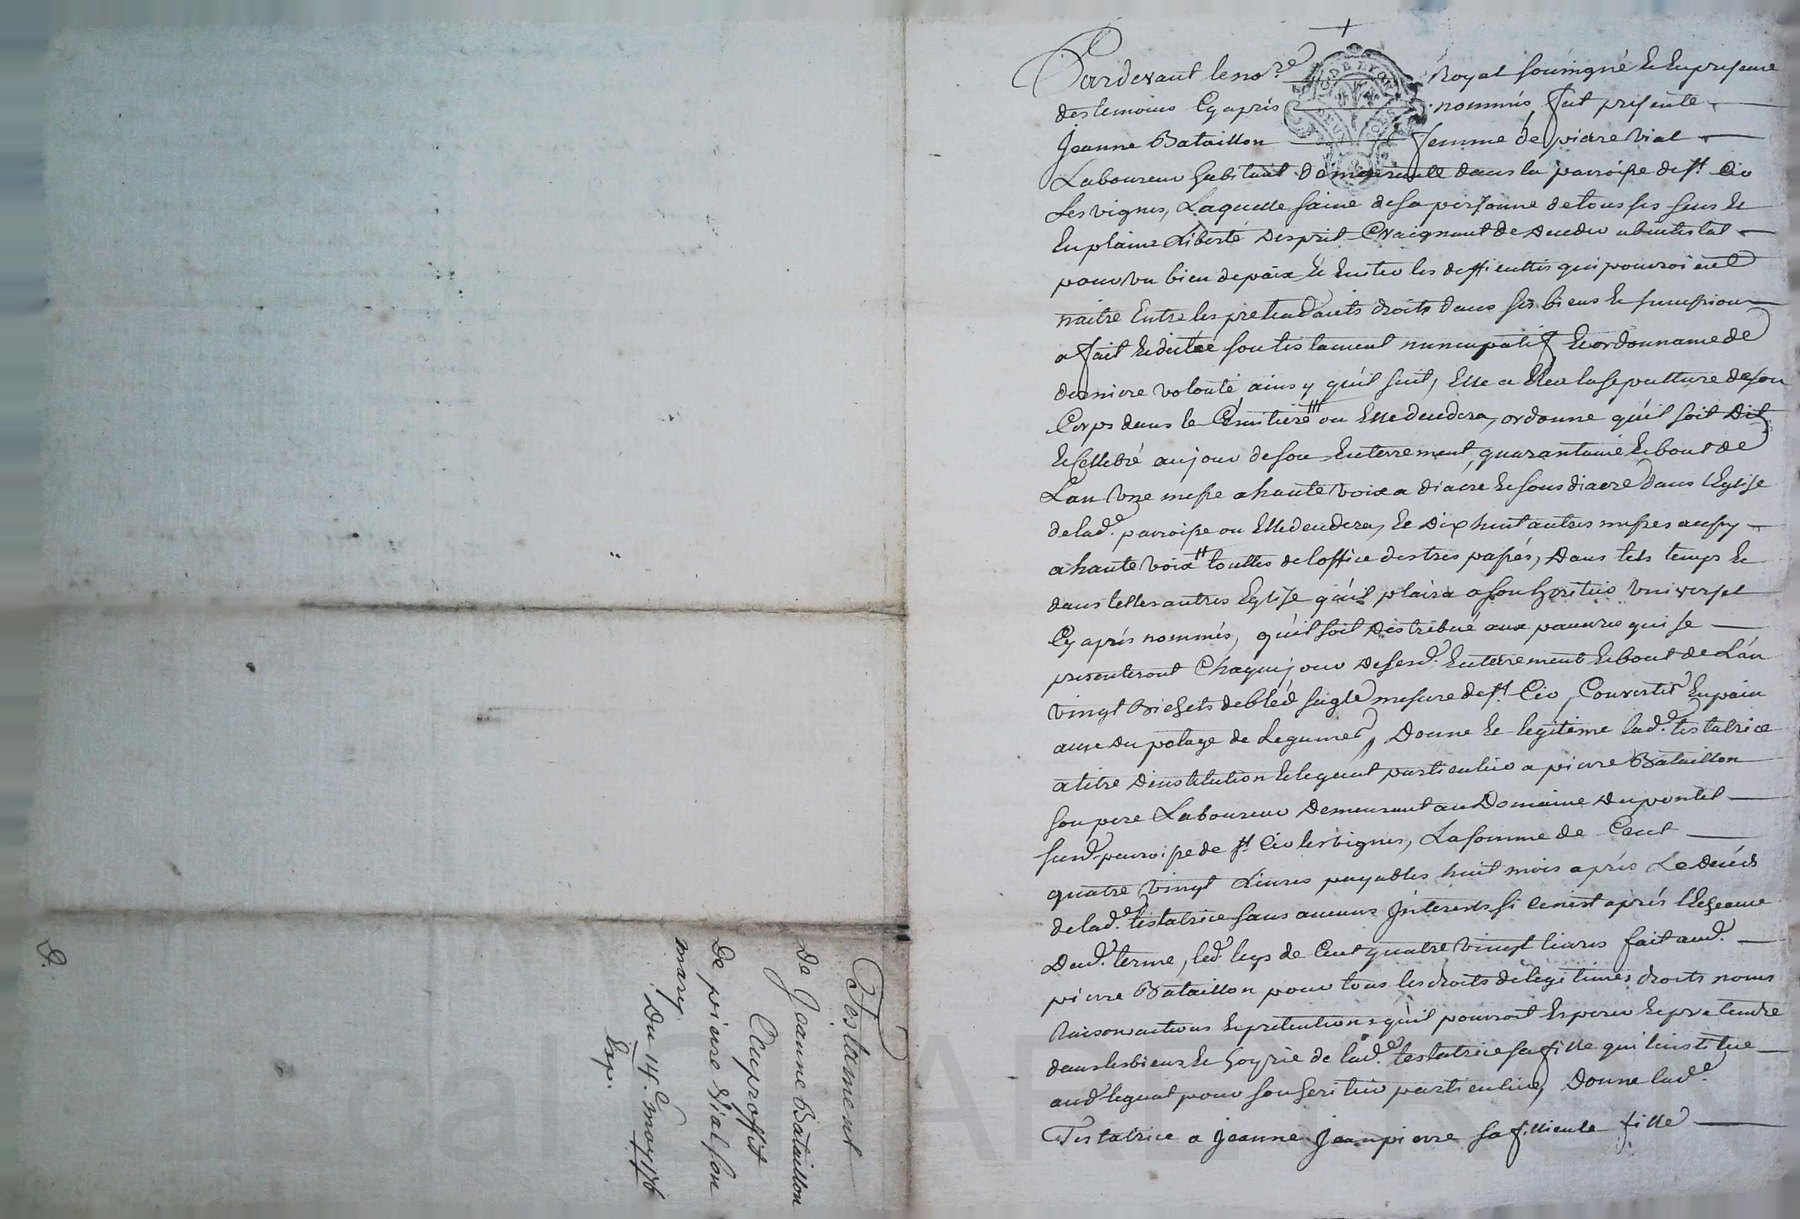 Pardevant le no.re Royal soussigné & en presence
des temoins Cy aprés nommés, fut presente
Jeanne Bataillon femme de pierre vial
Laboureur habitant demeurant dans la parroisse de st. Cir
Les vignes, Laquelle saine de sa personne de tous ses sens &
En plaine Liberte desprit Craignant de deceder abintestat
pour un bien de paix & Eviter les difficultés qui pourroient
naitre Entre les pretendants droits dans ses biens & succession
a fait & dicté son testament nuncupatif & ordonnance de
derniere volonté ainsy qu'il suit, Elle a Eleu la sepulture de son
Corps dans le Cemitiere ou Elle decedera, ordonne qu'il soit dit
& Cellebré au jour de son Enterrement, quarantaine & bout de
L'an Une messe a haute voix a diacre & sous diacre dans l'Eglise
de lad.e parroisse ou Elle decedera, & Dix huit autres messes aussy
a haute voix touttes de l'office des tres passés, Dans tels temps &
dans telles autres Eglise qu'il plaira a son heritier Universel
Cy aprés nommés, qu'il soit distribué aux pauvres qui se
presenteront Chaque jour de sesd. Enterrement & bout de L'an
vingt Bichets de bled seigle mesure de st. Cir, Convertis En pain
avec du potage de Legumes, Donne & legitime lad.e testatrice
a titre d'institution & legat particulier a pierre Bataillon
son pere Laboureur demeurant au Domaine du pontet
susd. parroisse de st. Cir les vignes, La somme de Cent
quatre vingt Livres payables huit mois aprés Le décéds
de lad.e testatrice sans aucuns Interests si ce n'est aprés l'Echeance
Dud. terme, led. legs de Cent quatre vingt livres fait aud.
pierre Bataillon pour tous les droits de legitimes, droits noms
Raisons actions & pretentions qu'il pourroit Esperer & pretendre
dans les biens & hoyrie de lad.e testatrice sa fille qui l'institue
aud. legat pour son heritier particulier, Donne lad.e
Testatrice a Jeanne Jeanpierre sa fillieule fille
Testament
De Jeanne Bataillon
Au proffit
De pierre Vial son
mary
Du 14.e may 176
Exp.